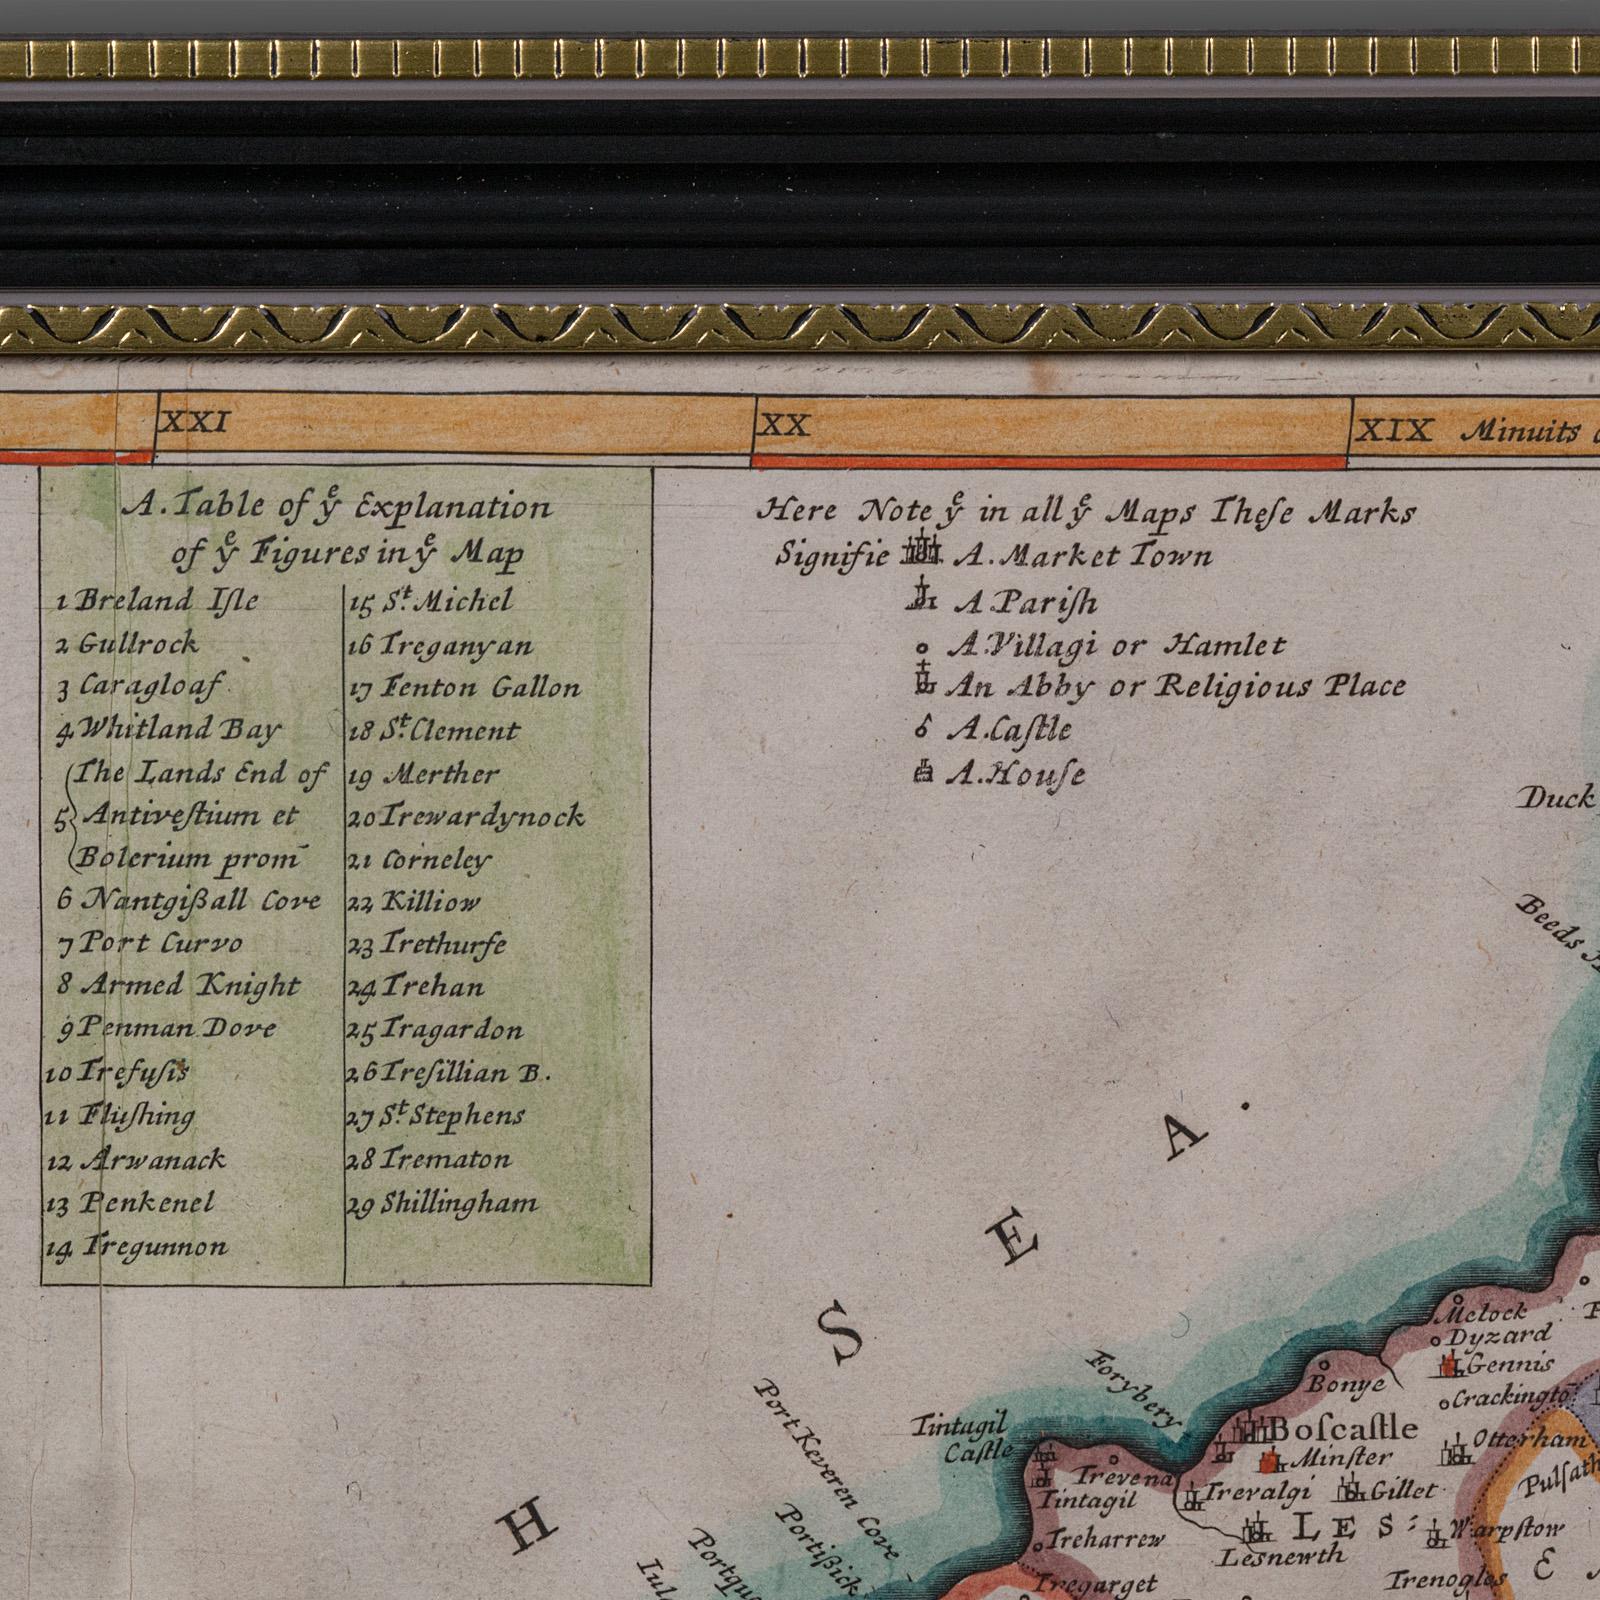 XXI XX XIX Minuits
A. Table of yᵉ Explanation
of yᵉ Figures in yᵉ Map
1 Breland Iſle
2 Gullrock
3 Caragloaf
4 Whitland Bay
5 The Lands End of
Antiveſtium et
Bolerium prom̄
6 Nantgißall Cove
7 Port Curvo
8 Armed Knight
9 Penman Dove
10 Trefuſis
11 Fluſhing
12 Arwanack
13 Penkenel
14 Tregunnon
15 Sᵗ. Michel
16 Treganyan
17 Fenton Gallon
18 Sᵗ. Clement
19 Merther
20 Trewardynock
21 Corneley
22 Killiow
23 Trethurfe
24 Trehan
25 Tragardon
26 Treſillian B.
27 Sᵗ. Stephens
28 Trematon
29 Shillingham
Here Note yᵉ in all yᵉ Maps Theſe Marks
Signifie A. Market Town
A Pariſh
A Villagi or Hamlet
An Abby or Religious Place
A. Caſtle
A. Houſe
Duck
Beeds
H S E A
Melock
Dyzard
Gennis
Crackingtō
Bonye
Forybery
Boſcaſtle
Minſter
Otterham
Tintagil
Caſtle
Trevena
Tintagil
Trevalgi
Gillet
Pulſath
LES:
Warpſtow
Lesnewth
Treharrew
Tregarget
Trenogles
E
Port Keveren Cove
Portißick